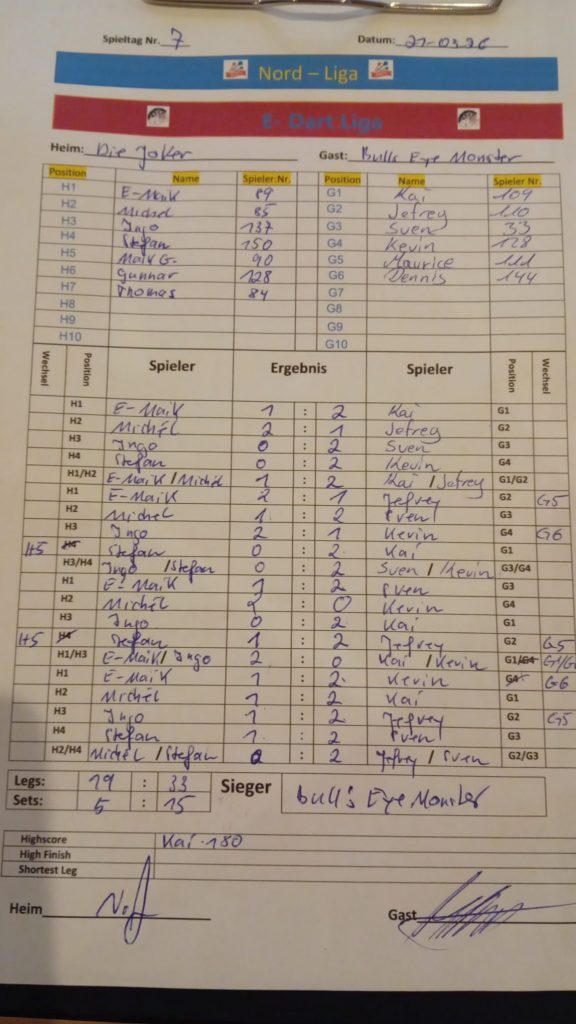 Spieltag Nr. 7 Datum: 21-03.26
Nord – Liga
E- Dart Liga
Heim: Die Joker Gast: Bulls Eye Monster
Position Name Spieler.Nr. Position Name Spieler Nr.
H1 E-Maik 89 G1 Kai 109
H2 Michél 85 G2 Jefrey 110
H3 Ingo 137 G3 Sven 33
H4 Stefan 150 G4 Kevin 128
H5 Maik G. 90 G5 Maurice 111
H6 Gunnar 128 G6 Dennis 144
H7 Thomas 84 G7
H8 G8
H9 G9
H10 G10
Wechsel Position Spieler Ergebnis Spieler Position Wechsel
H1 E-Maik 1 : 2 Kai G1
H2 Michél 2 : 1 Jefrey G2
H3 Ingo 0 : 2 Sven G3
H4 Stefan 0 : 2 Kevin G4
H1/H2 E-Maik / Michél 1 : 2 Kai / Jefrey G1/G2
H1 E-Maik 2 : 1 Jefrey G2 G5
H2 Michel 1 : 2 Sven G3
H3 Ingo 2 : 1 Kevin G4 G6
H5 H4 Stefan 0 : 2 Kai G1
H3/H4 Ingo / Stefan 0 : 2 Sven / Kevin G3/G4
H1 E-Maik 1 : 2 Sven G3
H2 Michél 2 : 0 Kevin G4
H3 Ingo 0 : 2 Kai G1
H5 H4 Stefan 1 : 2 Jefrey G2 G5
H1/H3 E-Maik / Ingo 2 : 0 Kai / Kevin G1/G4 G1/G6
H1 E-Maik 1 : 2 Kevin G4 G6
H2 Michél 1 : 2 Kai G1
H3 Ingo 1 : 2 Jefrey G2 G5
H4 Stefan 1 : 2 Sven G3
H2/H4 Michél / Stefan 0 : 2 Jefrey / Sven G2/G3
Legs: 19 : 33 Sieger Bull's Eye Monster
Sets: 5 : 15
Highscore Kai 180
High Finish
Shortest Leg
Heim Gast